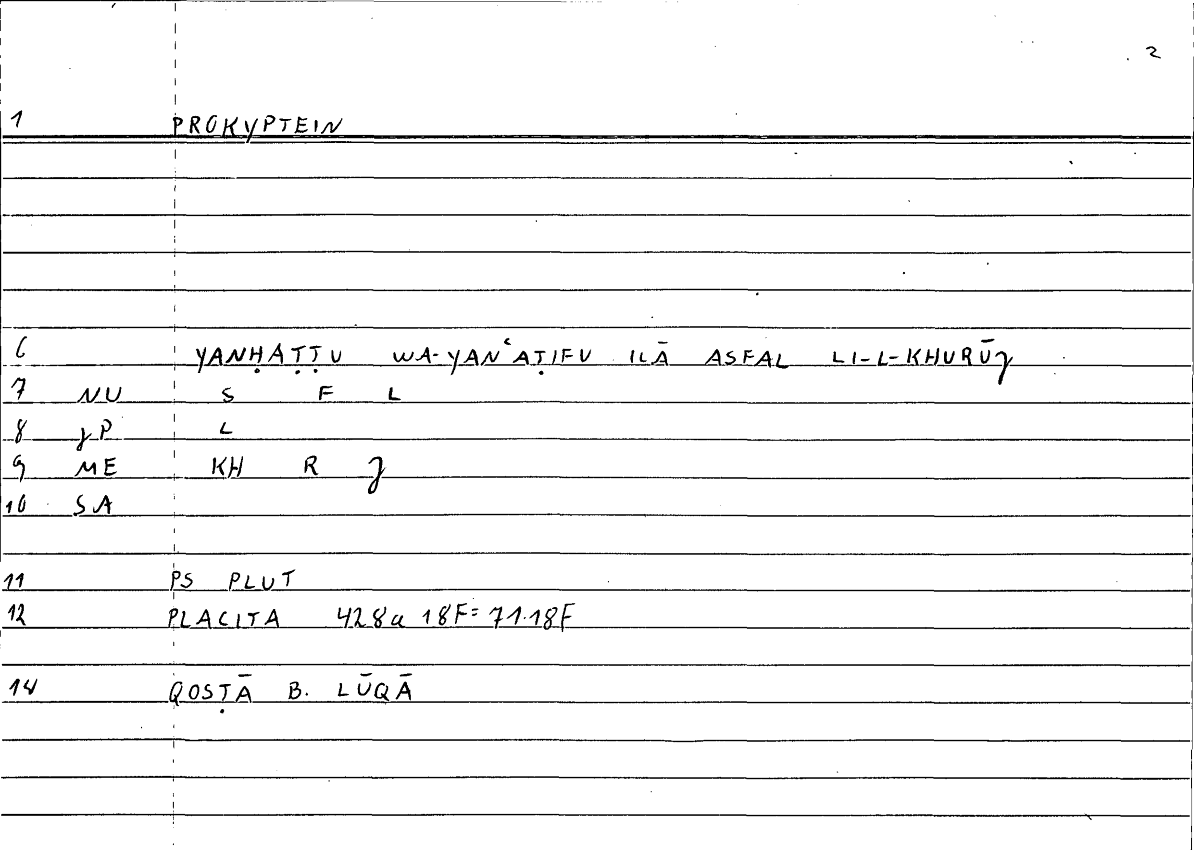 2
1 PROKYPTEIN
6 YANḤAṬṬU WA-YANʿAṬIFU ILĀ ASFAL LI-L-KHURŪȷ
7 NU S F L
8 ȷP L
9 ME KH R ȷ
10 SA
11 PS PLUT
12 PLACITA 428a 18F=71.18F
14 QOSṬĀ B. LŪQĀ